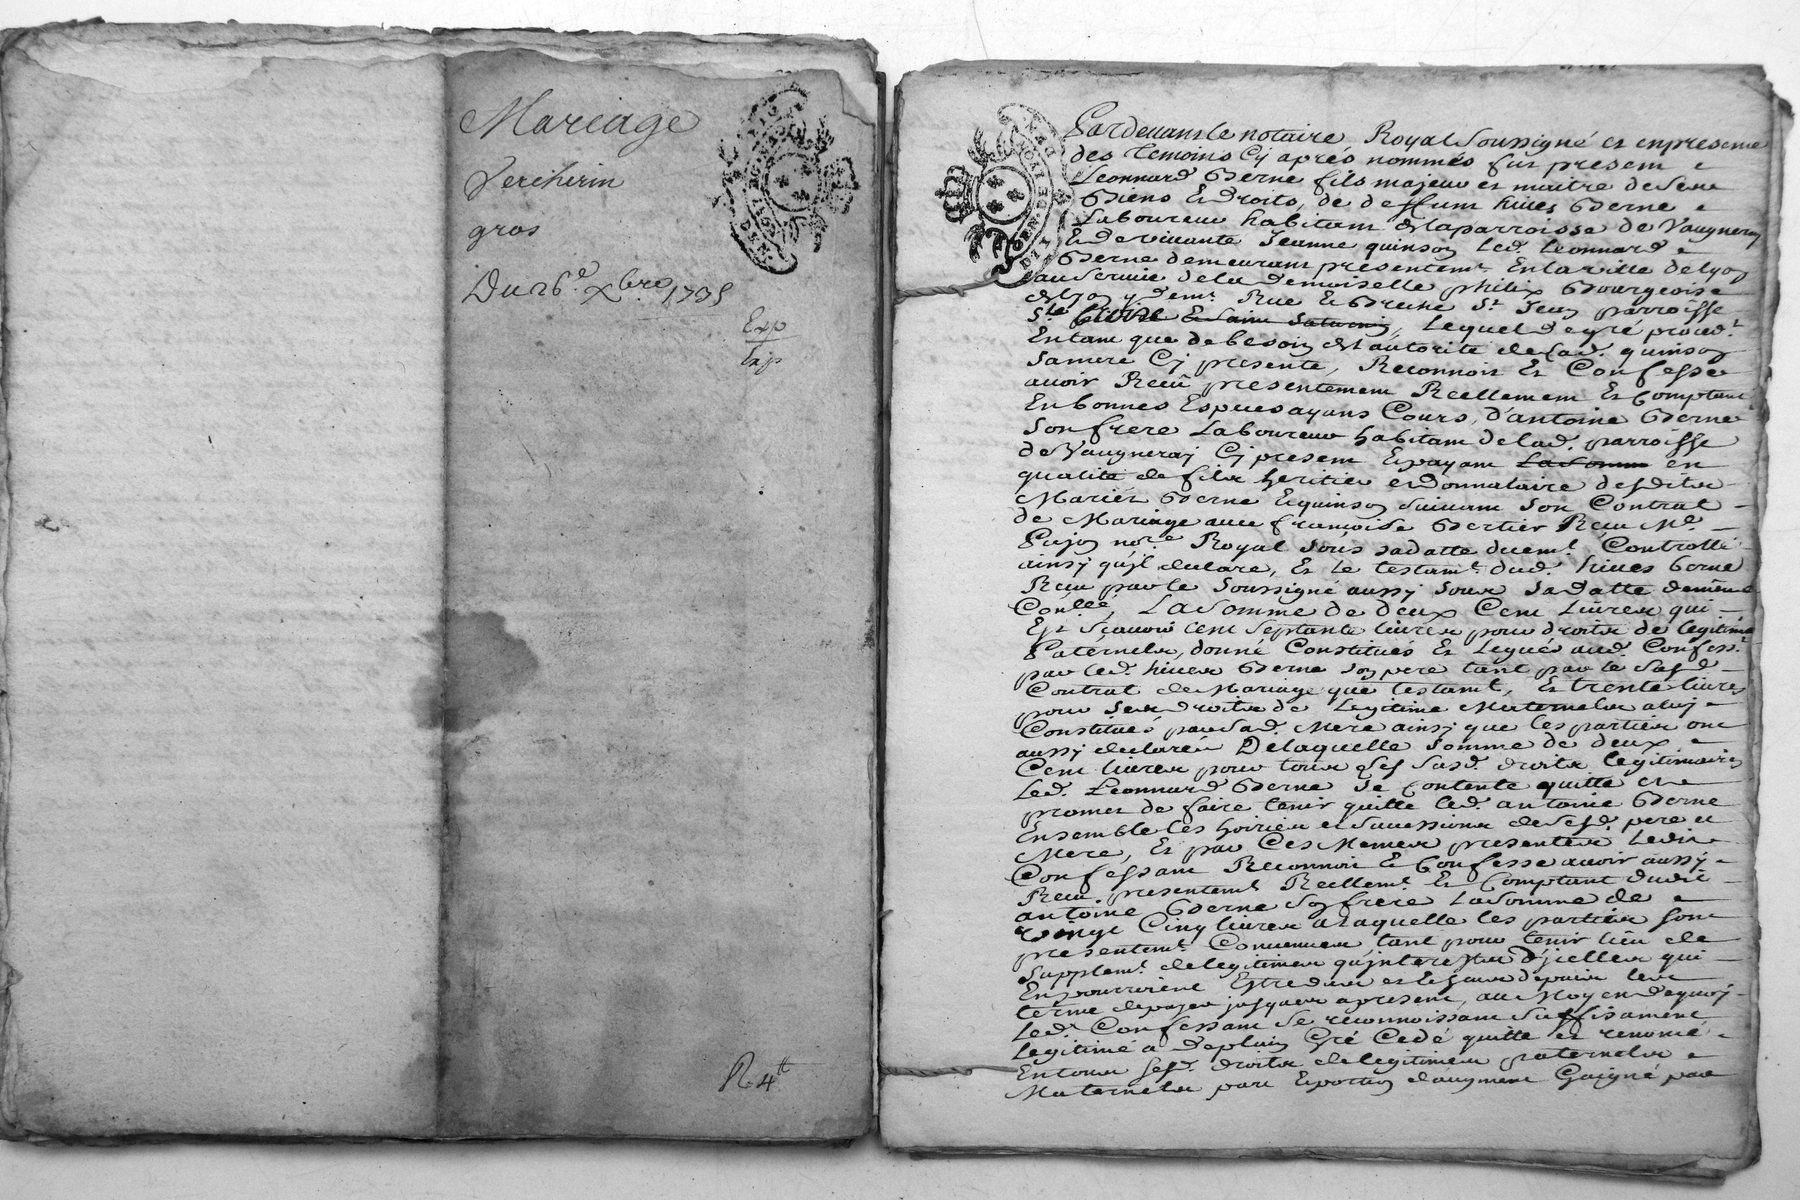 Mariage
Vercherin
gros
Du 26.e xbre 1735
Exp
Exp
R. 4 tt
GEN. DE LYON
Pardevant le notaire Royal Soussigné et en presence
des temoins Cy aprés nommés fut present
Leonnard Berne fils majeur et maitre de ses
Biens Et droits, de deffunt hues Berne
Laboureur habitant de la parroisse de Vaugneray
Et de vivante Jeanne quinson Led. Leonnard
Berne demeurant presentemt. En la ville de Lyon
au service de la Demoiselle philix Bourgeoise
de Lyon y demt. Rue St. Jean parroisse
Ste Croix, Lequel de gré proced.t
En tant que de besoin de l'autorité de lad. quinson
Sa mere Cy presente, Reconnoit Et Confesse
avoir Receu presentement Reellement Et Comptant
En bonnes Especes ayant Cours, d'antoine Berne
Son frere Laboureur habitant de lad. parroisse
de Vaugneray Cy present Et payant La Somme en
qualité de fils heritier et donnataire desdits
Mariés Berne Et quinson Suivant Son Contrat
de Mariage avec francoise Bertier Receu Me.
Pujon nore. Royal Sous sa datte duemt. Controllé
ainsy qu'jl declare, Et le testamt. dud. hues berne
Receu par le Soussigné aussy Sous Sa datte
Conllé, La Somme de deux Cent Livres qui
Est Scavoir Cent Septante livres pour droits de legitime
Paternels, donné Constitués Et Legués aud. Confess.t
par led. hues Berne Son pere tant par le Susd.
Contrat de Mariage que testamt, Et trente livres
pour Ses droits de Legitime Maternels a luy
Constitués par Sad. Mere ainsy que les parties ont
aussy declarés De laquelle Somme de deux
Cent livres pour tous Ses Susd. droits legitimaires
Led. Leonnard Berne Se Contente quitte et
promet de faire tenir quitte led. antoine Berne
Ensemble les hoiries et Successions de Sesd. pere et
Mere, Et par Ces Memes presentes Ledit
Confessant Reconnoit Et Confesse avoir aussy
Receu presentemt. Reellemt. Et Comptant dudit
antoine Berne Son frere La Somme de
Vingt Cinq livres a laquelle les parties Sont
presentemt. Convenues tant pour tenir lieu de
Supplemt. de legitimes qu'jnterests d'jcelles qui
En pourroient Estre deus et Echeus depuis leur
terme de payer jusques a present, au Moyen de quoy
Led. Confessant Se reconnoissant Suffisament
Legitimé a de plein Gré Cedé quitté et renoncé
En tous Sesd. droits de legitimes paternels
Maternels part Et portion d'augment Gaigné par